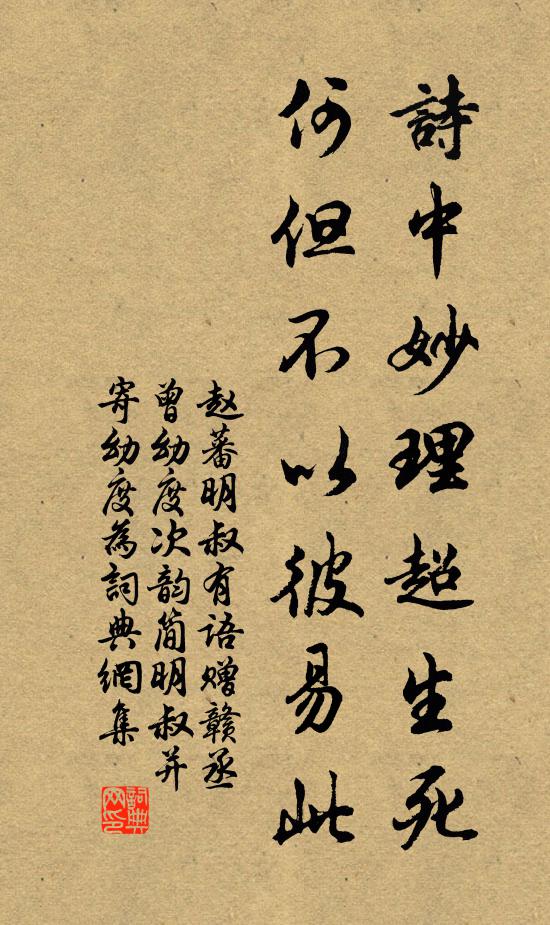 詩中妙理超生死
何但不以彼易此
赵蕃明叔有语赠赣丞
曾幼度次韵简明叔并
寄幼度為詞典網集
詞典
网印